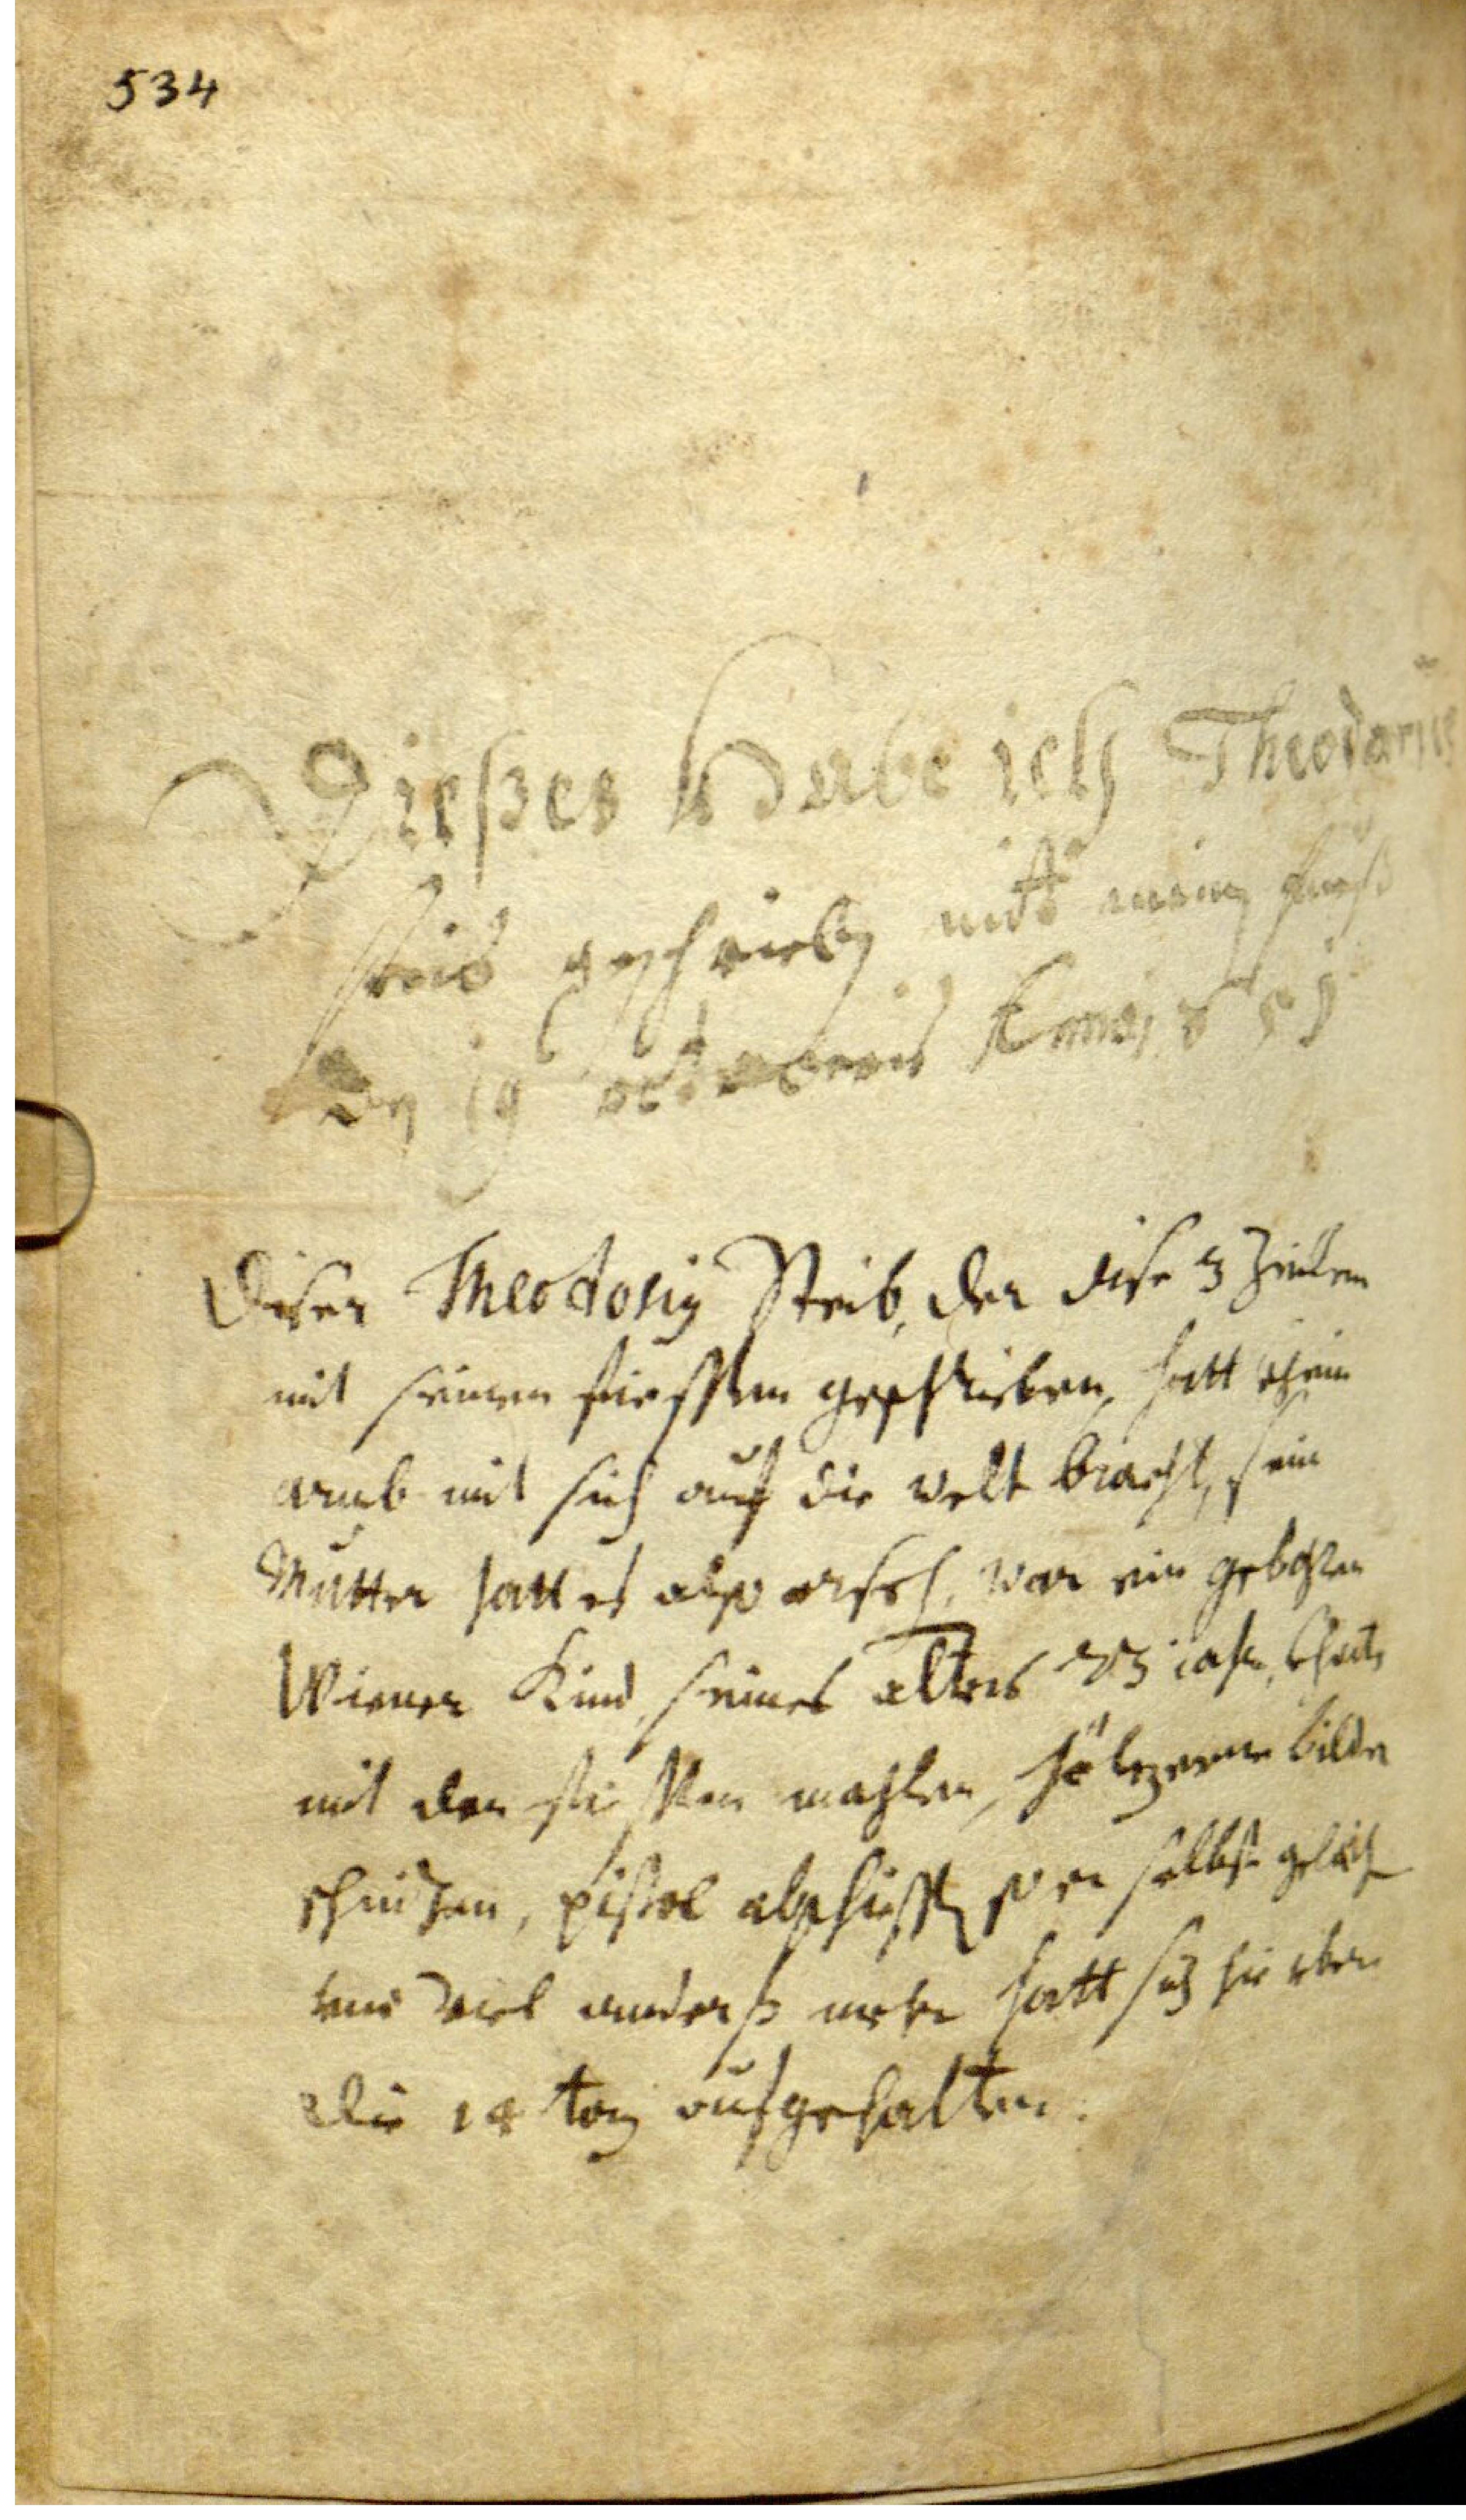 534
Dießes Habe ich Theodorius
steib geschrieben mit meinen fueß
den 19 octobris
Diser Theodosig Steib, der dise 3 Zeillen
mit seinen fiessen geschrieben hatt khein
armb mit sich auf die welt bracht, sein
Mutter hatt es also, war ein gebohren
Wiener Kind, seines alters 23 iahr, khente
mit den fiessen mahlen, hölzerne bilder
schnizen, pistol abschiessen so er selbst
vnd viel anderß mehr hatt sich hie vber
die 14 tag aufgehalten.